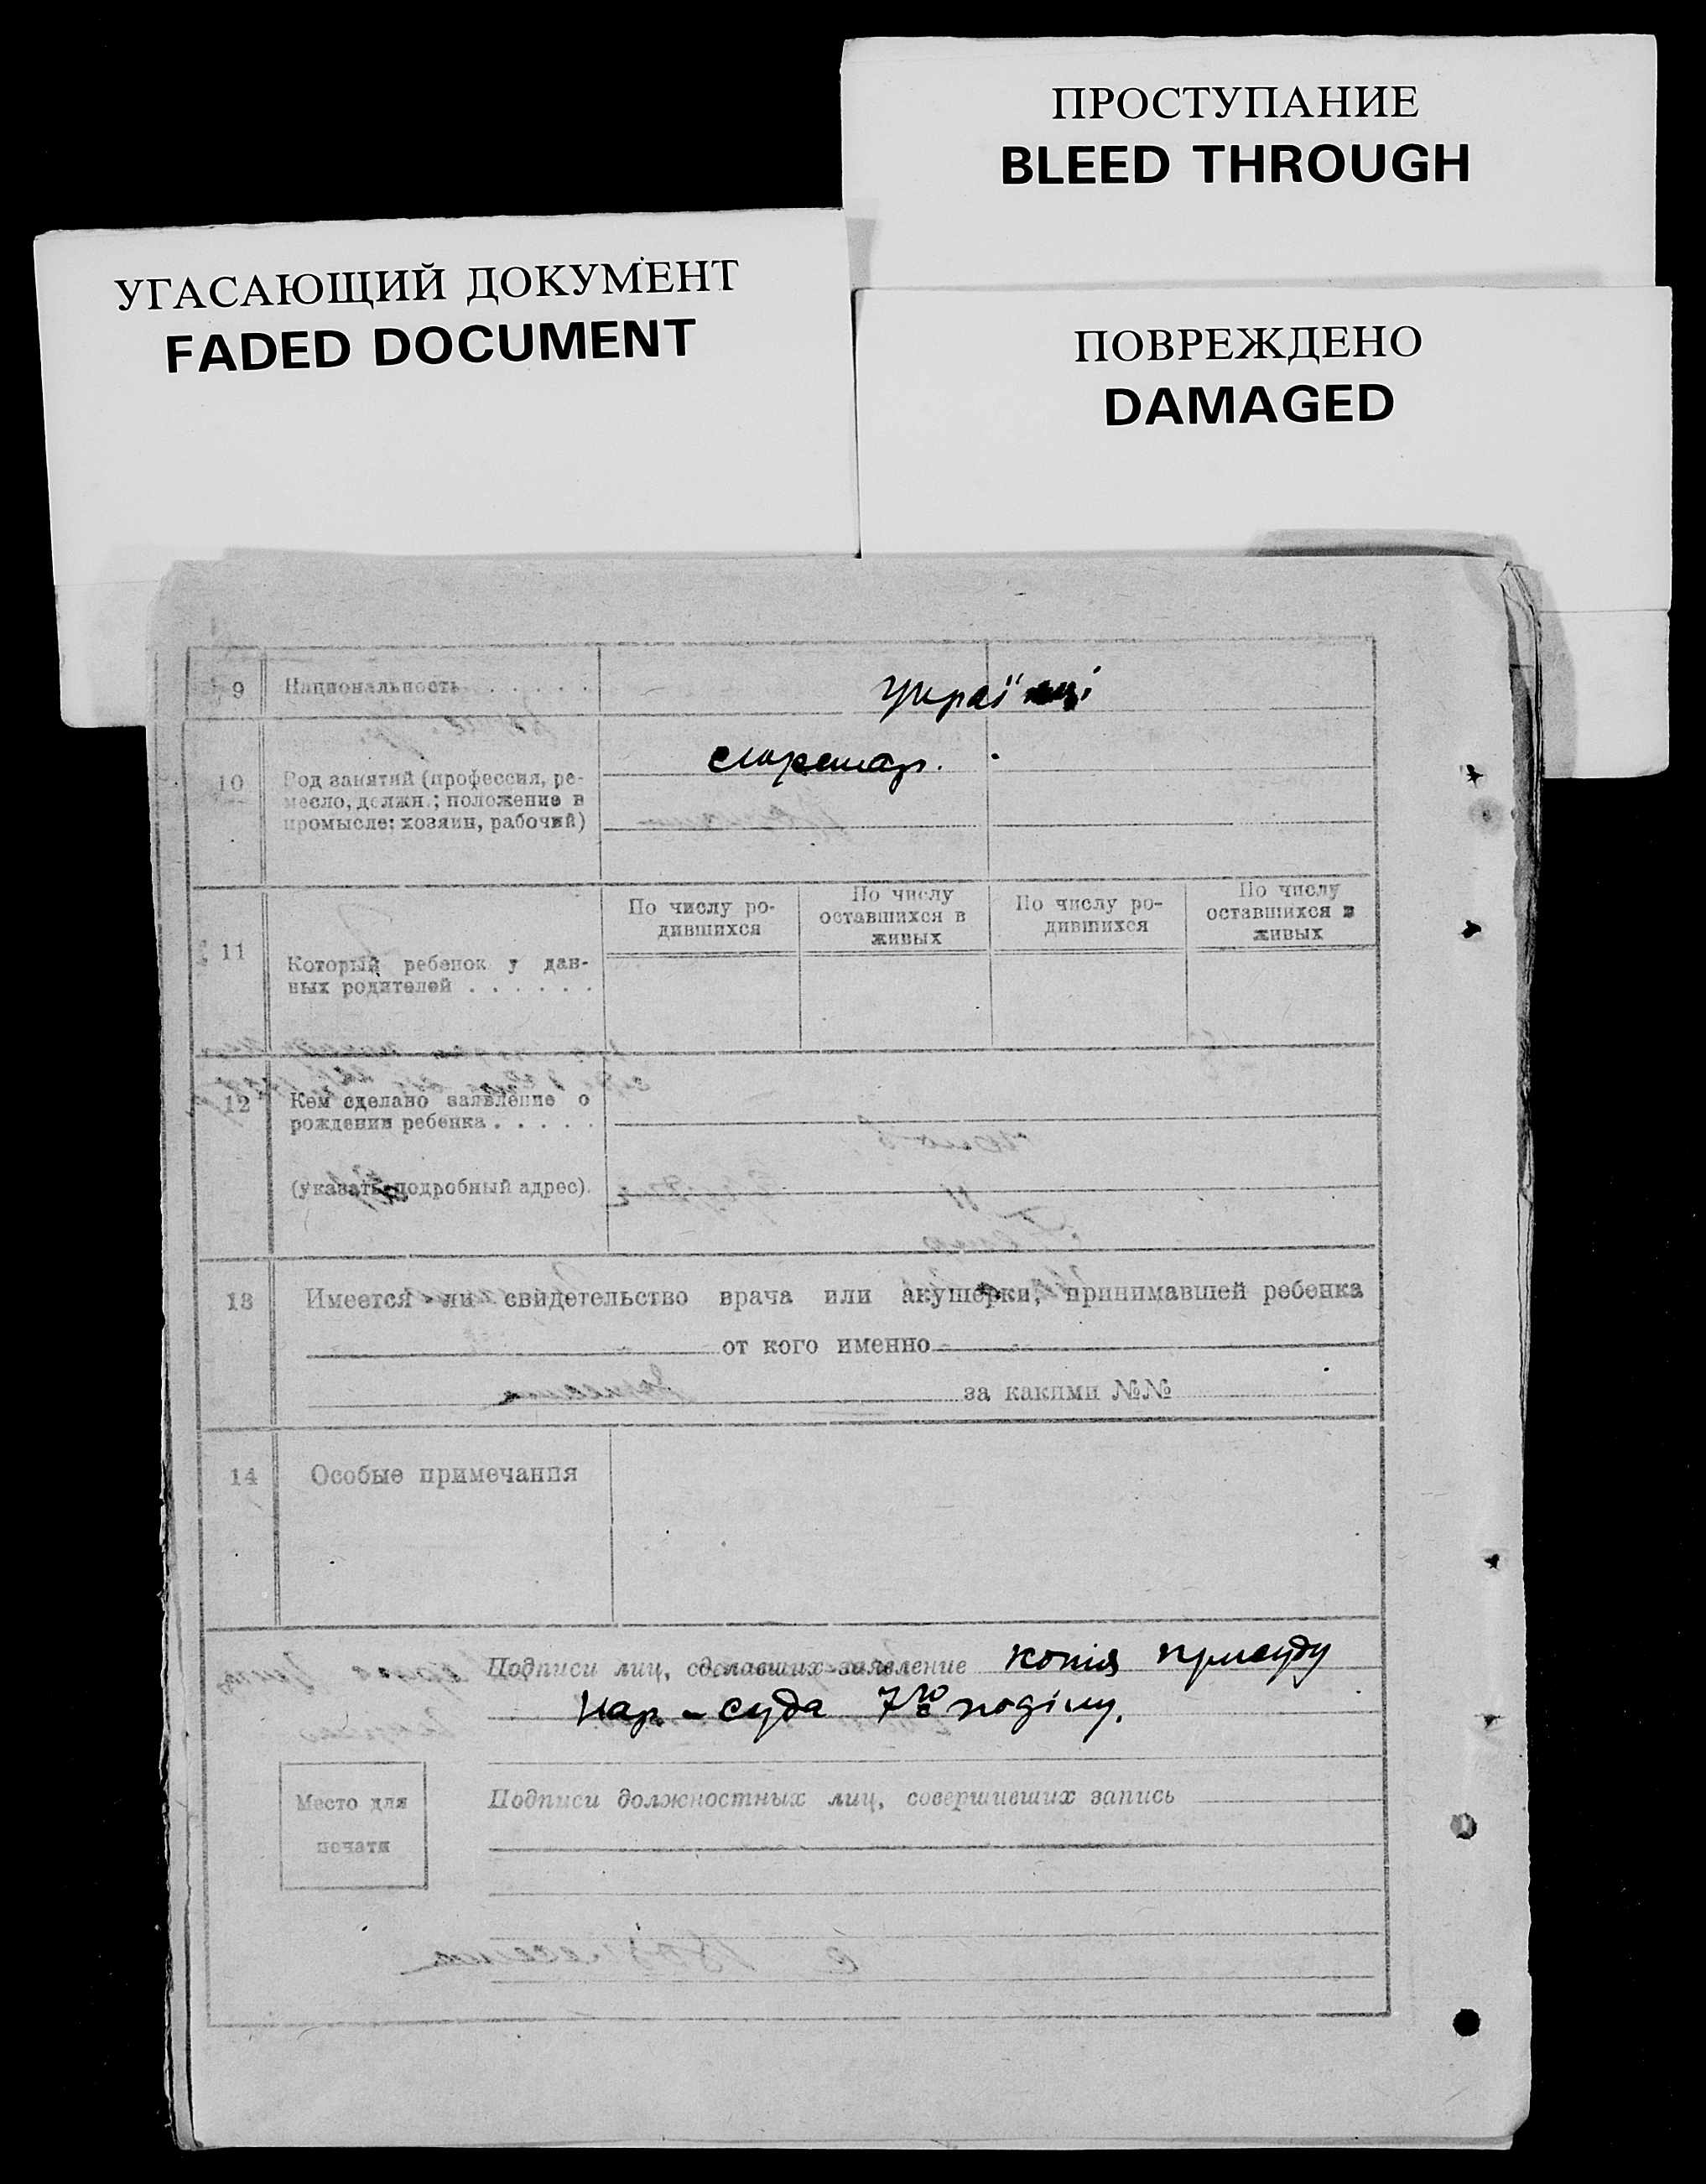 ПРОСТУПАНИЕ
BLEED THROUGH
УГАСАЮЩИЙ ДОКУМЕНТ
FADED DOCUMENT
ПОВРЕЖДЕНО
DAMAGED
9 Национальность . . . . . Українці
10 Род занятий (профессия, ре-
месло, должн.; положение в
промысле: хозяин, рабочий)
11 Который ребенок у дан-
ных родителей . . . . . .
По числу ро-
дившихся
По числу
оставшихся в
живых
По числу ро-
дившихся
По числу
оставшихся в
живых
12 Кем сделано заявление о
рождении ребенка . . . . .
(указать подробный адрес).
13 Имеется ли свидетельство врача или акушерки, принимавшей ребенка
от кого именно
за какими №№
14 Особые примечания
Подписи лиц, сделавших заявление копія присуду
Нар-суда
Место для
печати
Подписи должностных лиц, совершивших запись